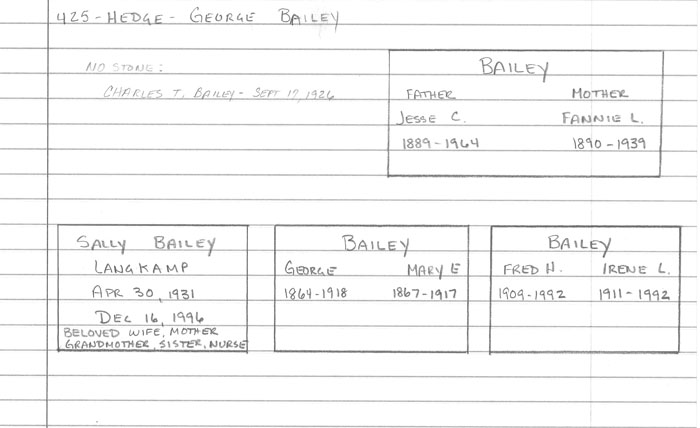 425-HEDGE- GEORGE BAILEY
NO STONE:
CHARLES T. BAILEY- SEPT 17, 1926
BAILEY
FATHER MOTHER
JESSE C. FANNIE L.
1889-1964 1890-1939
SALLY BAILEY
LANGKAMP
APR 30, 1931
DEC 16, 1996
BELOVED WIFE, MOTHER
GRANDMOTHER, SISTER, NURSE
BAILEY
GEORGE MARY E
1864-1918 1867-1917
BAILEY
FRED H. IRENE L.
1909-1992 1911-1992